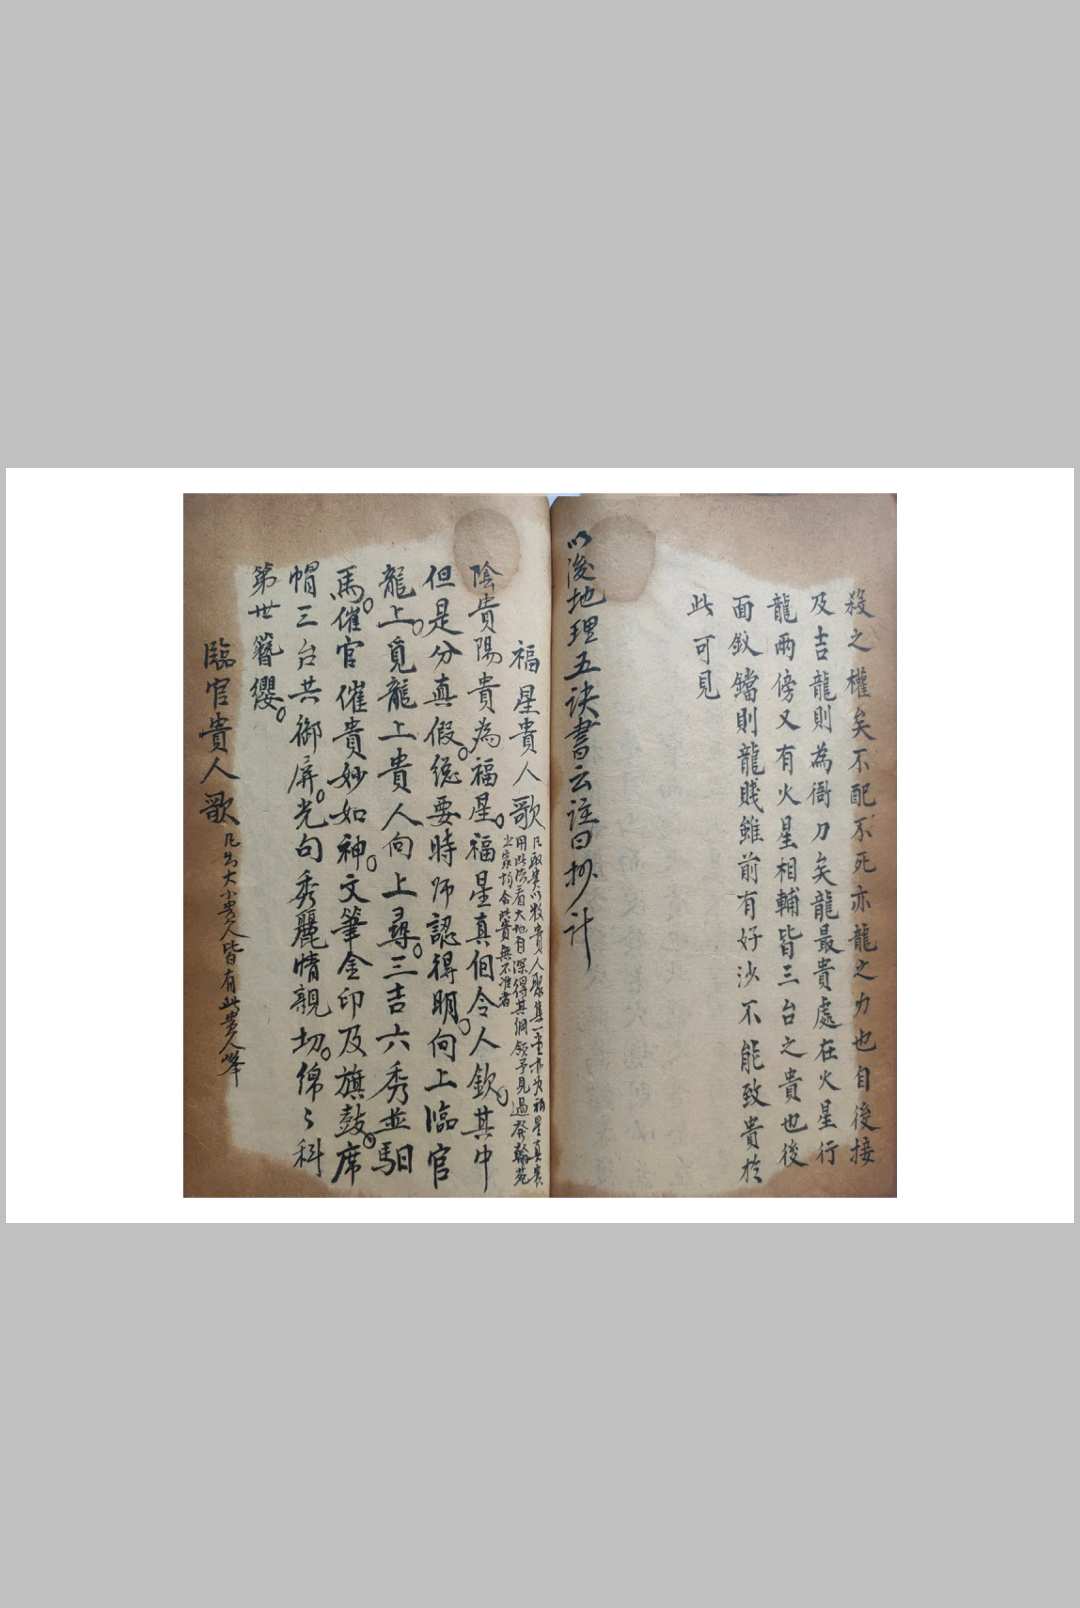 殺之權矣不配不死亦龍之力也自後接
及吉龍則為衙刀矣龍最貴處在火星行
龍兩傍又有火星相輔皆三台之貴也後
面鈫鐺則龍賤雖前有好沙不能致貴於
此可見
以後地理五訣書云註曰抄計
福星貴人歌
凡取貴以數貴人聚集一堂亦为福星真貴
用此法看大地自深得其個領予見過發翰苑
之家均合此貴無不准者
陰貴陽貴為福星福星真個令人欽其中
但是分真假總要時师認得明向上臨官
龍上覓龍上貴人向上尋三吉六秀並馹
馬催官催貴妙如神文筆金印及旗鼓席
帽三台共御屏光句秀麗情親切绵〻科
第世簪纓
臨官貴人歌
凡出大小貴人皆有此貴人峰